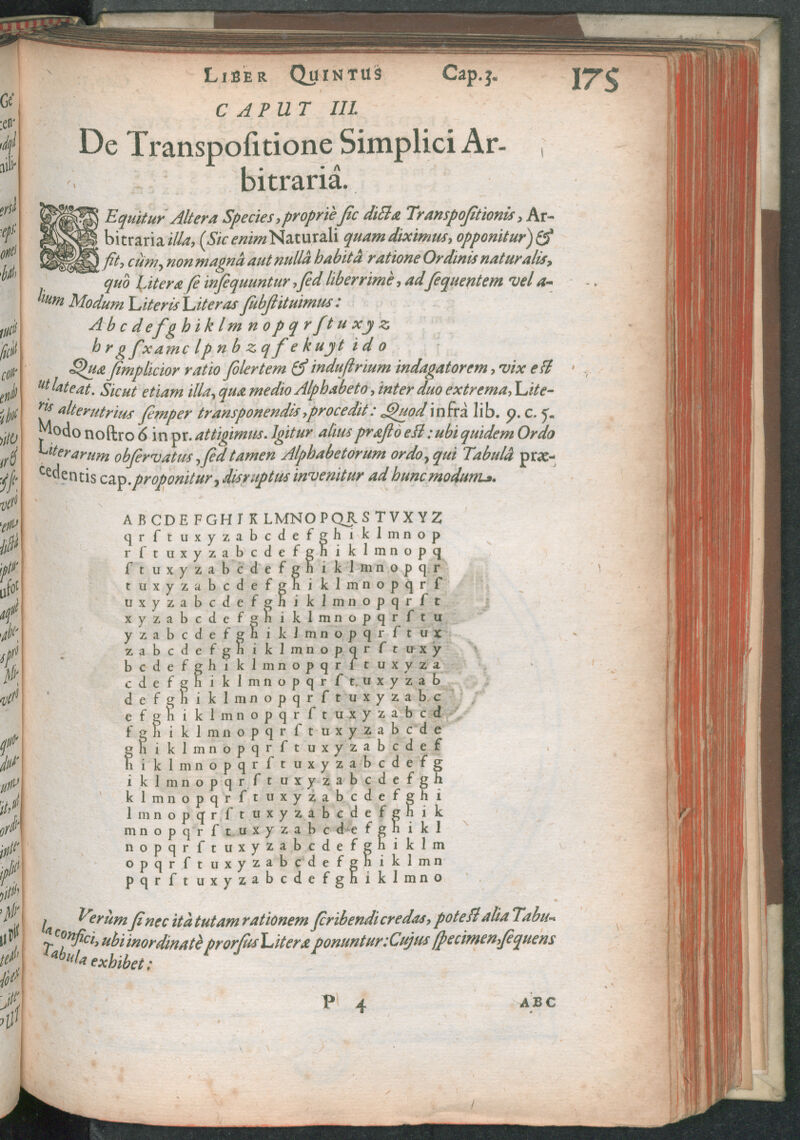 LIBER QUINTUS Cap.3. 175
CAPUT III.
De Transpoſitione Simplici Ar-
bitrariâ.
SEquitur Altera Species, propriè ſic dictæ Tranſpoſitionis, Ar-
bitraria illa, (Sic enim Naturali quam diximus, opponitur) &
fit, cùm, non magnâ aut nullâ habitâ ratione Ordinis naturalis,
quô Literæ ſe inſequuntur, ſed liberrimè, ad ſequentem vel a-
lium Modum Literis Literas ſubſtituimus:
A b c d e f g h i k l m n o p q r ſ t u x y z
h r g ſ x a m c l p n b z q f e k u y t i d o
Quæ ſimplicior ratio ſolertem & induſtrium indagatorem, vix eſt
ut lateat. Sicut etiam illa, quæ medio Alphabeto, inter duo extrema, Lite-
ris alterutrius ſemper transponendis, procedit: Quod infrà lib. 9. c. 5.
Modo noſtro 6 in pr. attigimus. Igitur alius præſto eſt: ubi quidem Ordo
Literarum obſervatus, ſed tamen Alphabetorum ordo, qui Tabulâ præ-
cedentis cap. proponitur, disruptus invenitur ad hunc modum.
A B C D E F G H I K L M N O P Q R S T V X Y Z
q r ſ t u x y z a b c d e f g h i k l m n o p
r ſ t u x y z a b c d e f g h i k l m n o p q
ſ t u x y z a b c d e f g h i k l m n o p q r
t u x y z a b c d e f g h i k l m n o p q r ſ
u x y z a b c d e f g h i k l m n o p q r ſ t
x y z a b c d e f g h i k l m n o p q r ſ t u
y z a b c d e f g h i k l m n o p q r ſ t u x
z a b c d e f g h i k l m n o p q r ſ t u x y
b c d e f g h i k l m n o p q r ſ t u x y z a
c d e f g h i k l m n o p q r ſ t u x y z a b
d e f g h i k l m n o p q r ſ t u x y z a b c
e f g h i k l m n o p q r ſ t u x y z a b c d
f g h i k l m n o p q r ſ t u x y z a b c d e
g h i k l m n o p q r ſ t u x y z a b c d e f
h i k l m n o p q r ſ t u x y z a b c d e f g
i k l m n o p q r ſ t u x y z a b c d e f g h
k l m n o p q r ſ t u x y z a b c d e f g h i
l m n o p q r ſ t u x y z a b c d e f g h i k
m n o p q r ſ t u x y z a b c d e f g h i k l
n o p q r ſ t u x y z a b c d e f g h i k l m
o p q r ſ t u x y z a b c d e f g h i k l m n
p q r ſ t u x y z a b c d e f g h i k l m n o
Verùm ſi nec ità tutam rationem ſcribendi credas, poteſt alia Tabu-
la confici, ubi inordinatè prorſus Literæ ponuntur: Cujus ſpecimen, ſequens
Tabula exhibet:
P 4 ABC